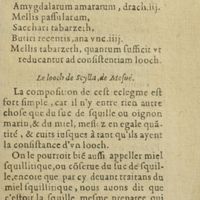 Amygdalarum amararum, drach.iiij.
Mellis passularum,
Sacchari tabarzeth,
Butiri recentis, ana vnc.iiij.
Mellis tabarzeth, quantum sufficit vt
reducantur ad consistentiam looch.
Le looch de Scylla, de Mesué.
La composition de cest eclegme est
fort simple, car il n'y entre rien autre
chose que du suc de squille ou oignon
marin, & du miel, mesz en egale qua-
tité, & cuits iusques à tant qu'ils ayent
la consistance d'vn looch.
On le pourroit biẽ aussi appeller miel
squillitique, ou conserue du suc de squil-
le, encore que par cy deuant traitans du
miel squillitique, nous auons dit que
c'estoit la squille mesme preparee qui